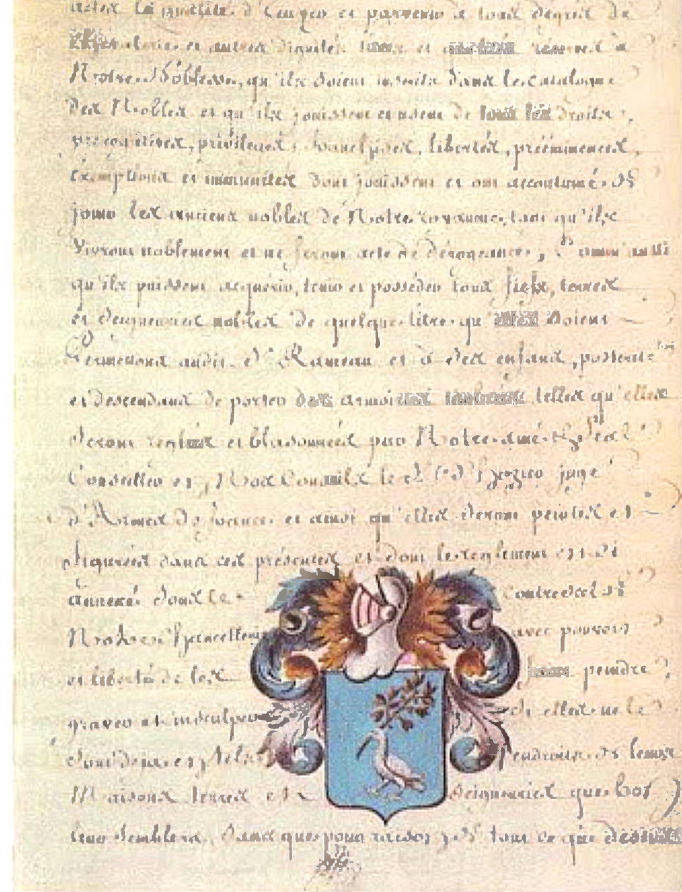 la qualité d'Ecuyer et parvenir à tous degrés de
Chevalerie et autres dignités et réservés à
Notre Noblesse, qu'ils soient inscrits dans le catalogue
des Nobles et qu'ils jouissent et usent de tous les droits,
prerogatives, privileges, franchises, libertés, prééminences,
exemptions et immunités dont jouissent et ont accoutumé de
jouir les anciens nobles de Notre royaume, tant qu'ils
vivront noblement et ne feront acte de dérogeance, Comm'aussi
qu'ils puissent acquerir, tenir et posséder tous fiefs, terres
et seigneuries nobles de quelque titre qu' soient
Permettons audit Sr Rameau et à ses enfans, posterité
et descendans de porter des armoiries telles qu'elles
seront reglées et blasonnées par Notre amé
Conseiller en Nos Conseils le Sr d'hozier juge
d'Armes de france et ainsi qu'elles seront peintes et
figurées dans ces présentes et dont le reglement est ci
annexé sous le contrescel de
Notre Chancellerie avec pouvoir
et liberté de les faire peindre,
graver et insculper si elles ne le
sont deja en tels endroits de leurs
Maisons terres et seigneuries que bon
leur semblera, sans que pour raison de tout ce que dessus